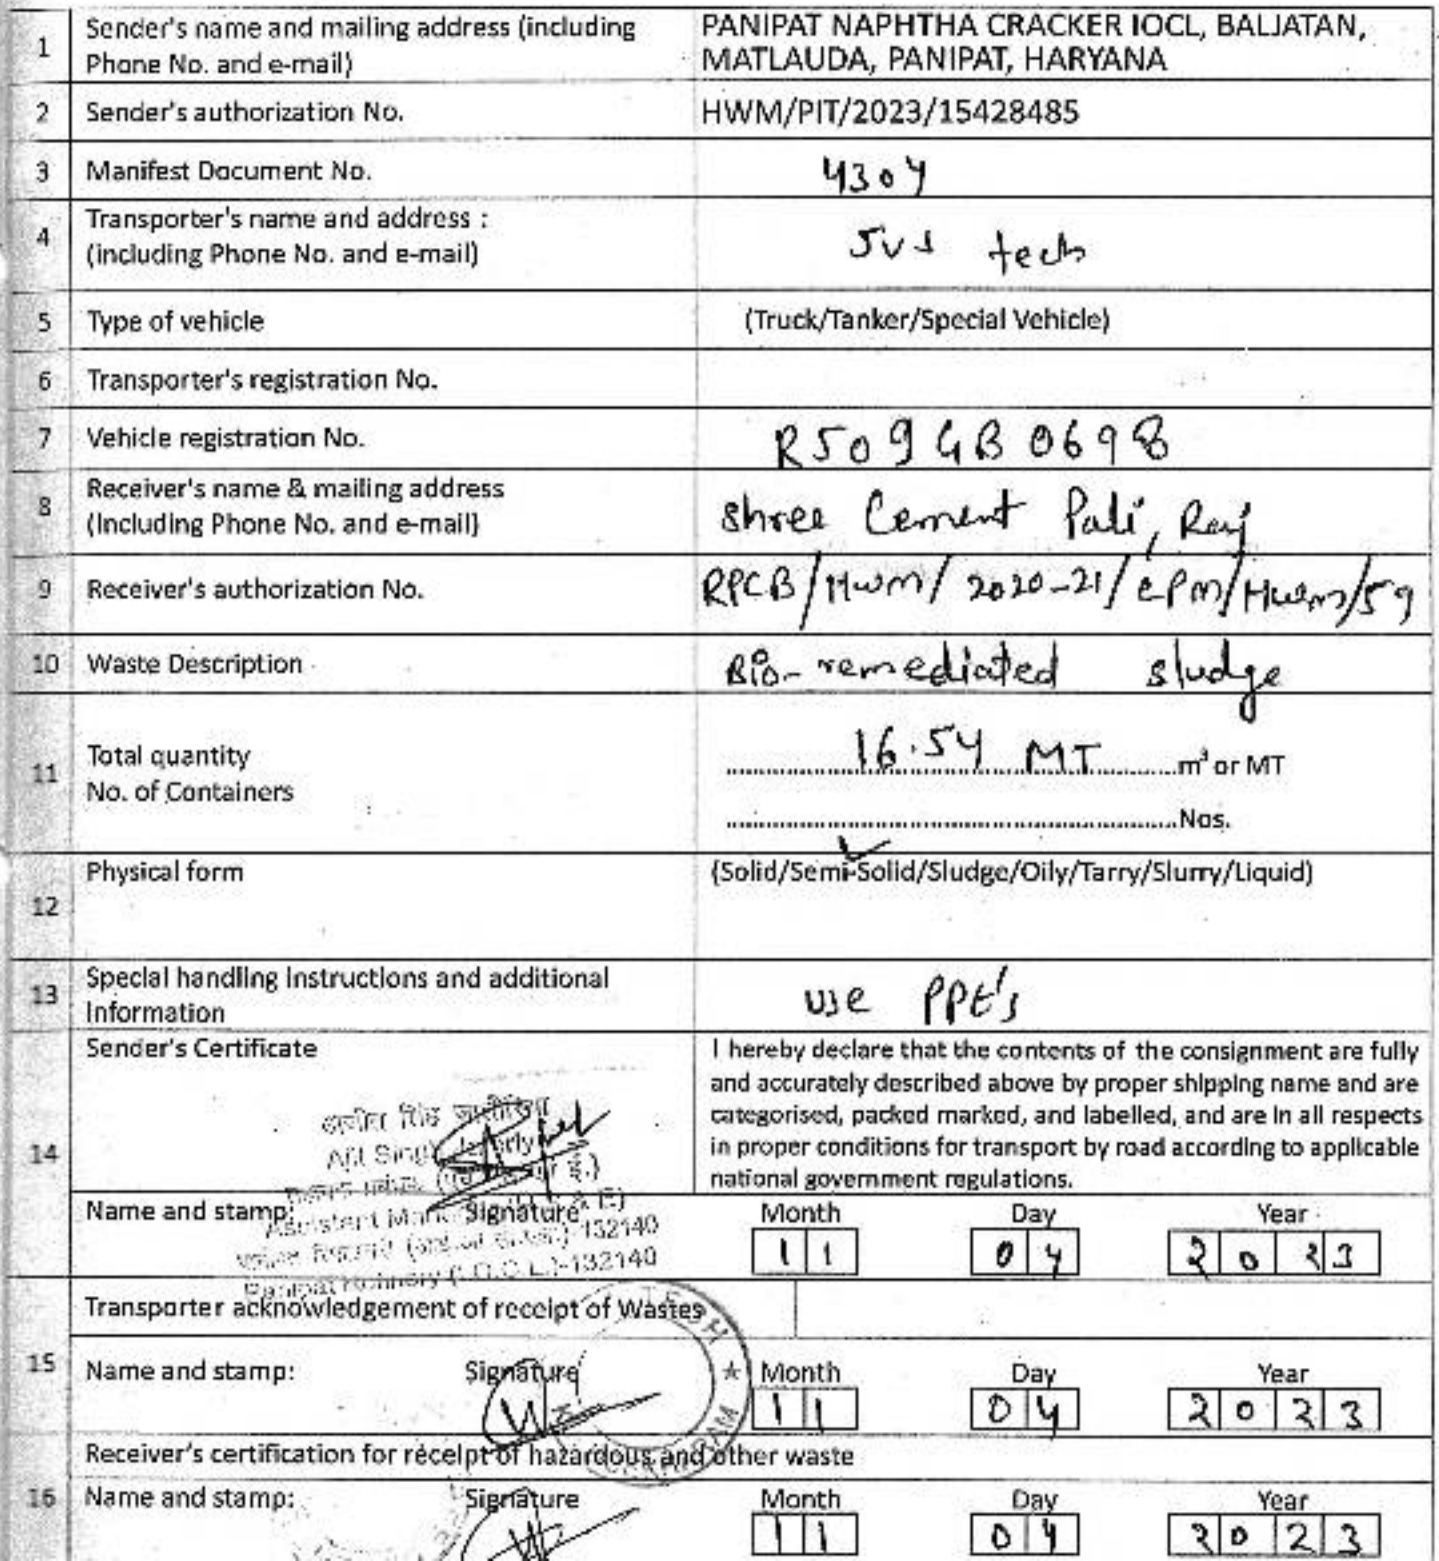 1 Sender's name and mailing address (including Phone No. and e-mail) PANIPAT NAPHTHA CRACKER IOCL, BALJATAN, MATLAUDA, PANIPAT, HARYANA
2 Sender's authorization No. HWM/PIT/2023/15428485
3 Manifest Document No. 4304
4 Transporter's name and address : (including Phone No. and e-mail) tech
5 Type of vehicle (Truck/Tanker/Special Vehicle)
6 Transporter's registration No.
7 Vehicle registration No. RJ09GB0698
8 Receiver's name & mailing address (Including Phone No. and e-mail) Shree Cement Pali, Raj
9 Receiver's authorization No. RPCB/HWM/2020-21/CPM/HWM/59
10 Waste Description Bio-remediated sludge
11 Total quantity 16.54 MT m³ or MT
No. of Containers Nos.
12 Physical form (Solid/Semi-Solid/Sludge/Oily/Tarry/Slurry/Liquid)
13 Special handling Instructions and additional Information use PPE's
14 Sender's Certificate
I hereby declare that the contents of the consignment are fully
and accurately described above by proper shipping name and are
categorised, packed marked, and labelled, and are in all respects
in proper conditions for transport by road according to applicable
national government regulations.
Name and stamp: Signature Month Day Year
11 04 2023
132140
Panipat Refinery (I.O.C.L.)-132140
Transporter acknowledgement of receipt of Wastes
15 Name and stamp: Signature Month Day Year
11 04 2023
Receiver's certification for receipt of hazardous and other waste
16 Name and stamp: Signature Month Day Year
11 04 2023